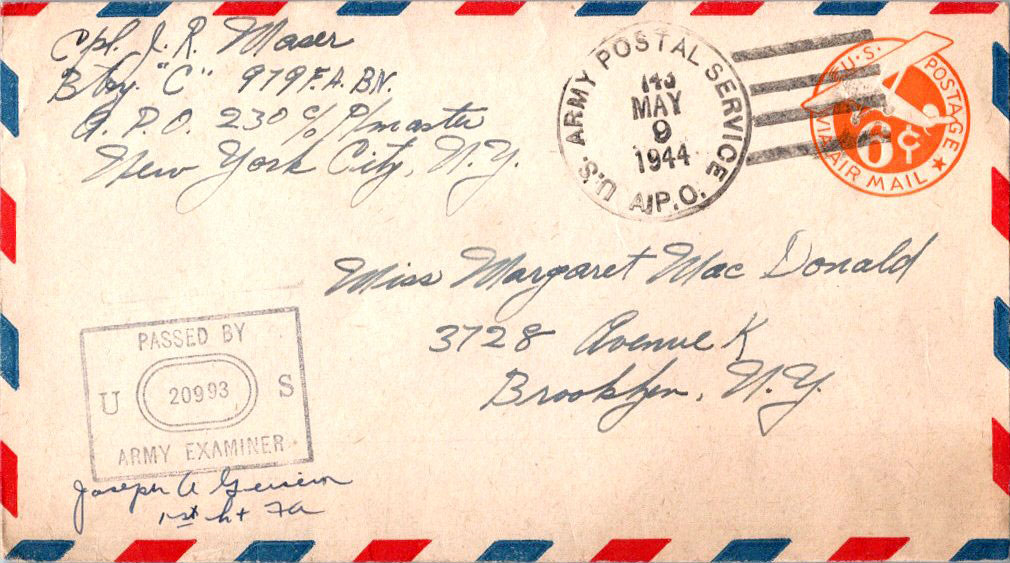 Cpl. J. R. Maser
Btry. "C" 979 F.A. BN.
A. P. O. 230 c/o P/master
New York City, N.Y.
U.S. ARMY POSTAL SERVICE
143
MAY
9
1944
A.P.O.
U.S. POSTAGE
6¢
VIA AIR MAIL
Miss Margaret Mac Donald
3728 Avenue K
Brooklyn, N.Y.
PASSED BY
U 20993 S
ARMY EXAMINER
Joseph A
1st Lt FA